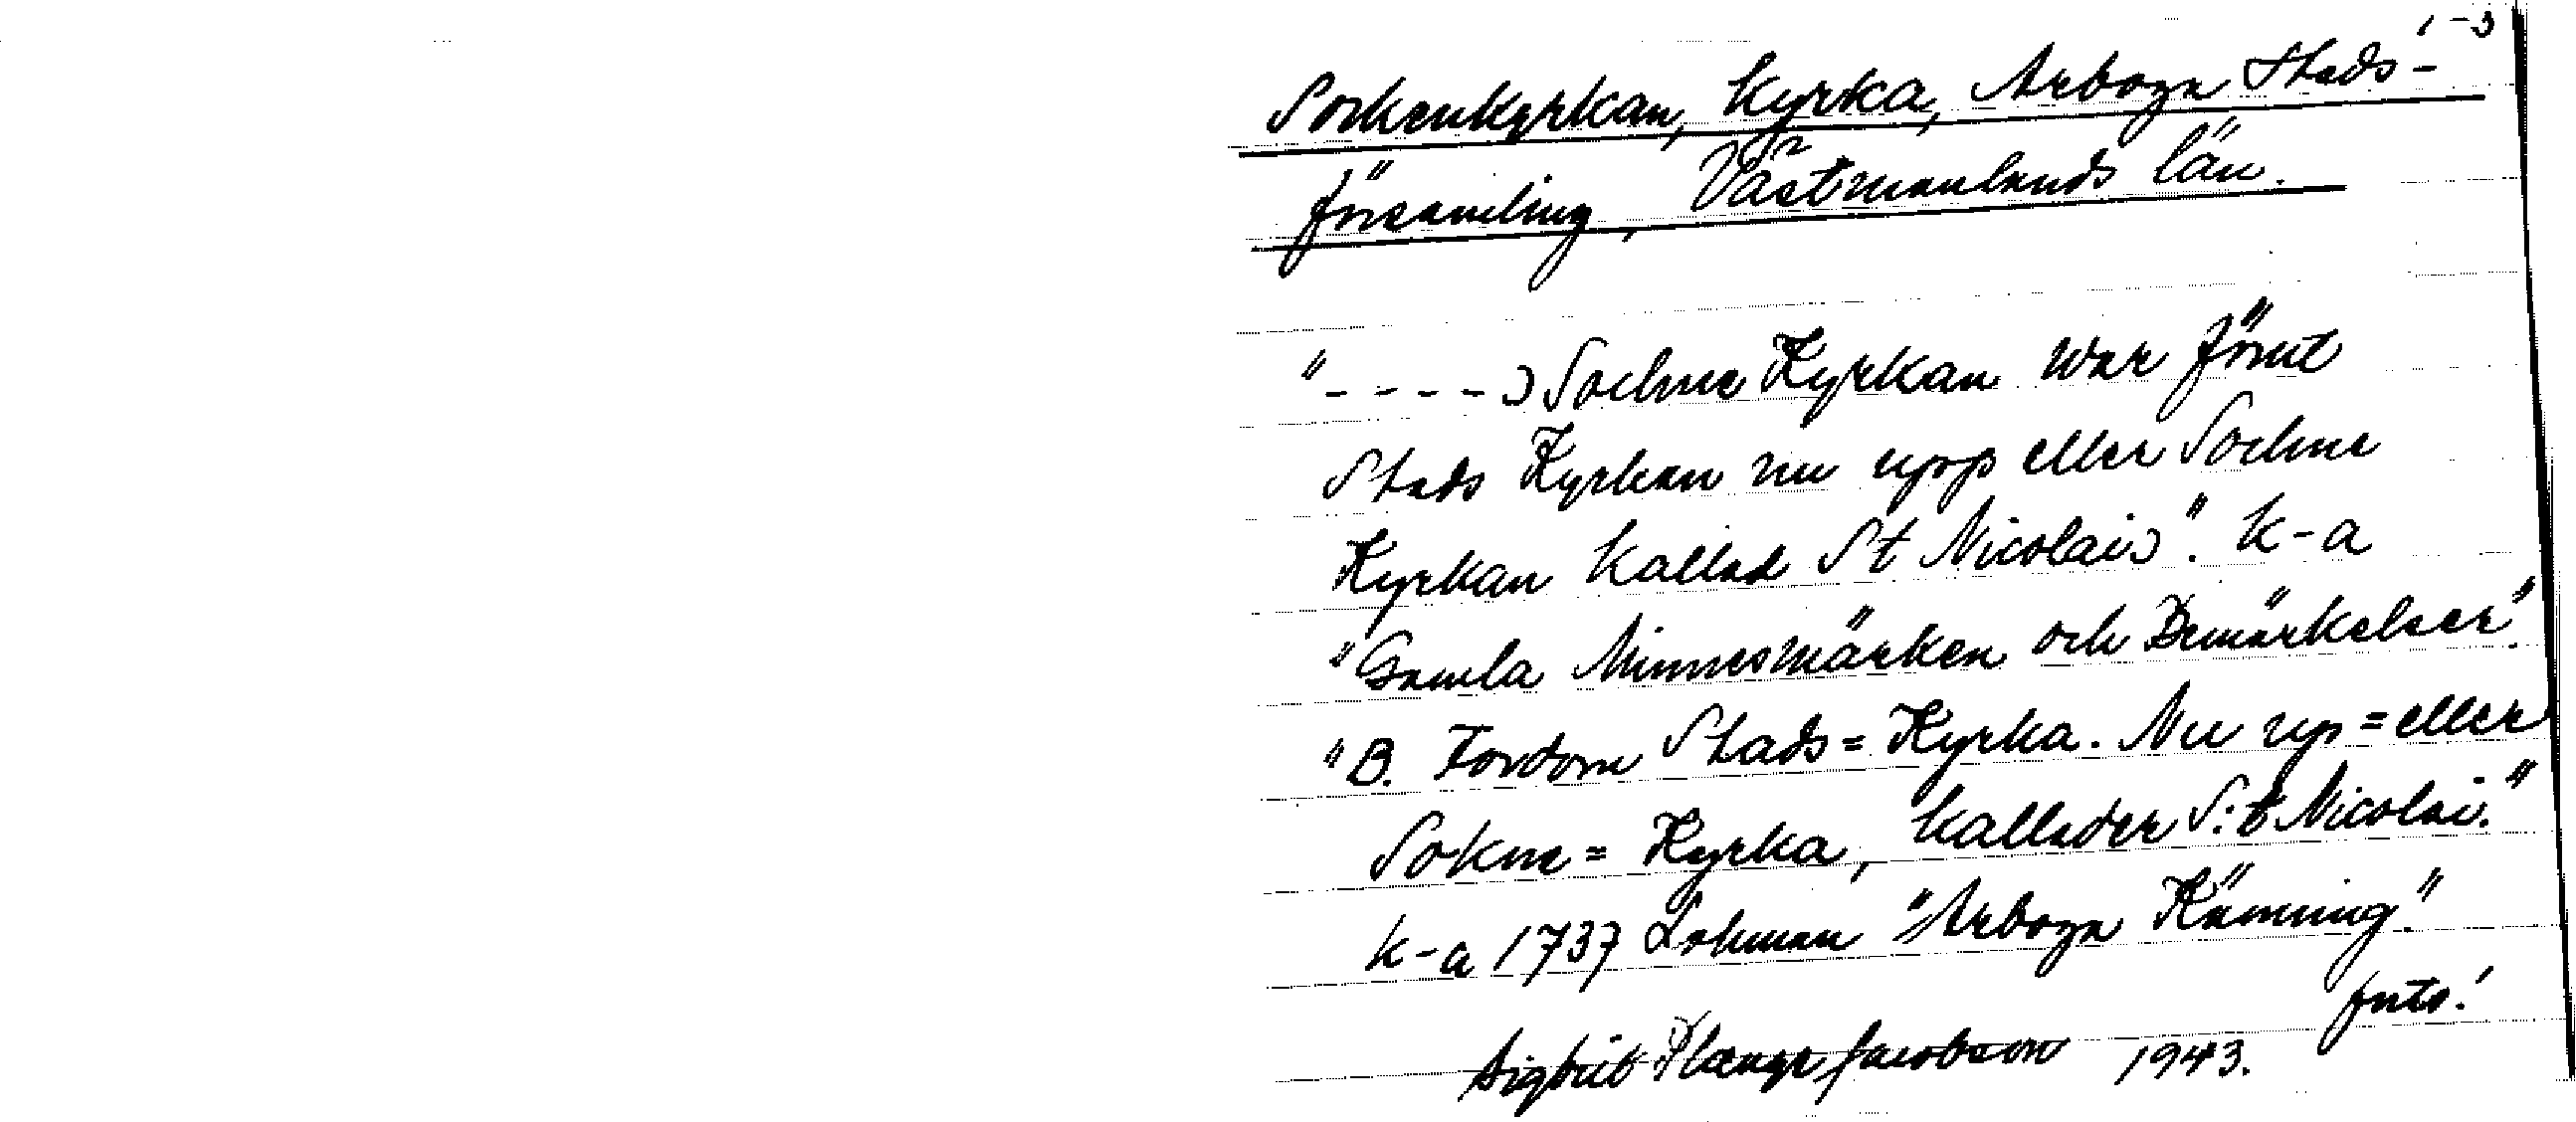 1-3
Sockenkyrkan, kyrka, Arboga stads-
församling, Västmanlands län.
"- - - -) Sochne Kyrkan war förut
Stads Kyrkan nu upp eller Sochne
Kyrkan kallad St Nicolai)". k-a
"Gamla Minnesmärken och Bemärkelser".
"B. Fordom Stads=Kyrka. Nu up=eller
Sokne=Kyrka, kallader S:t Nicolai."
k-a 1737 Lohman "Arboga Känning".
forts.!
Sigbrit Plænge Jacobson 1943.